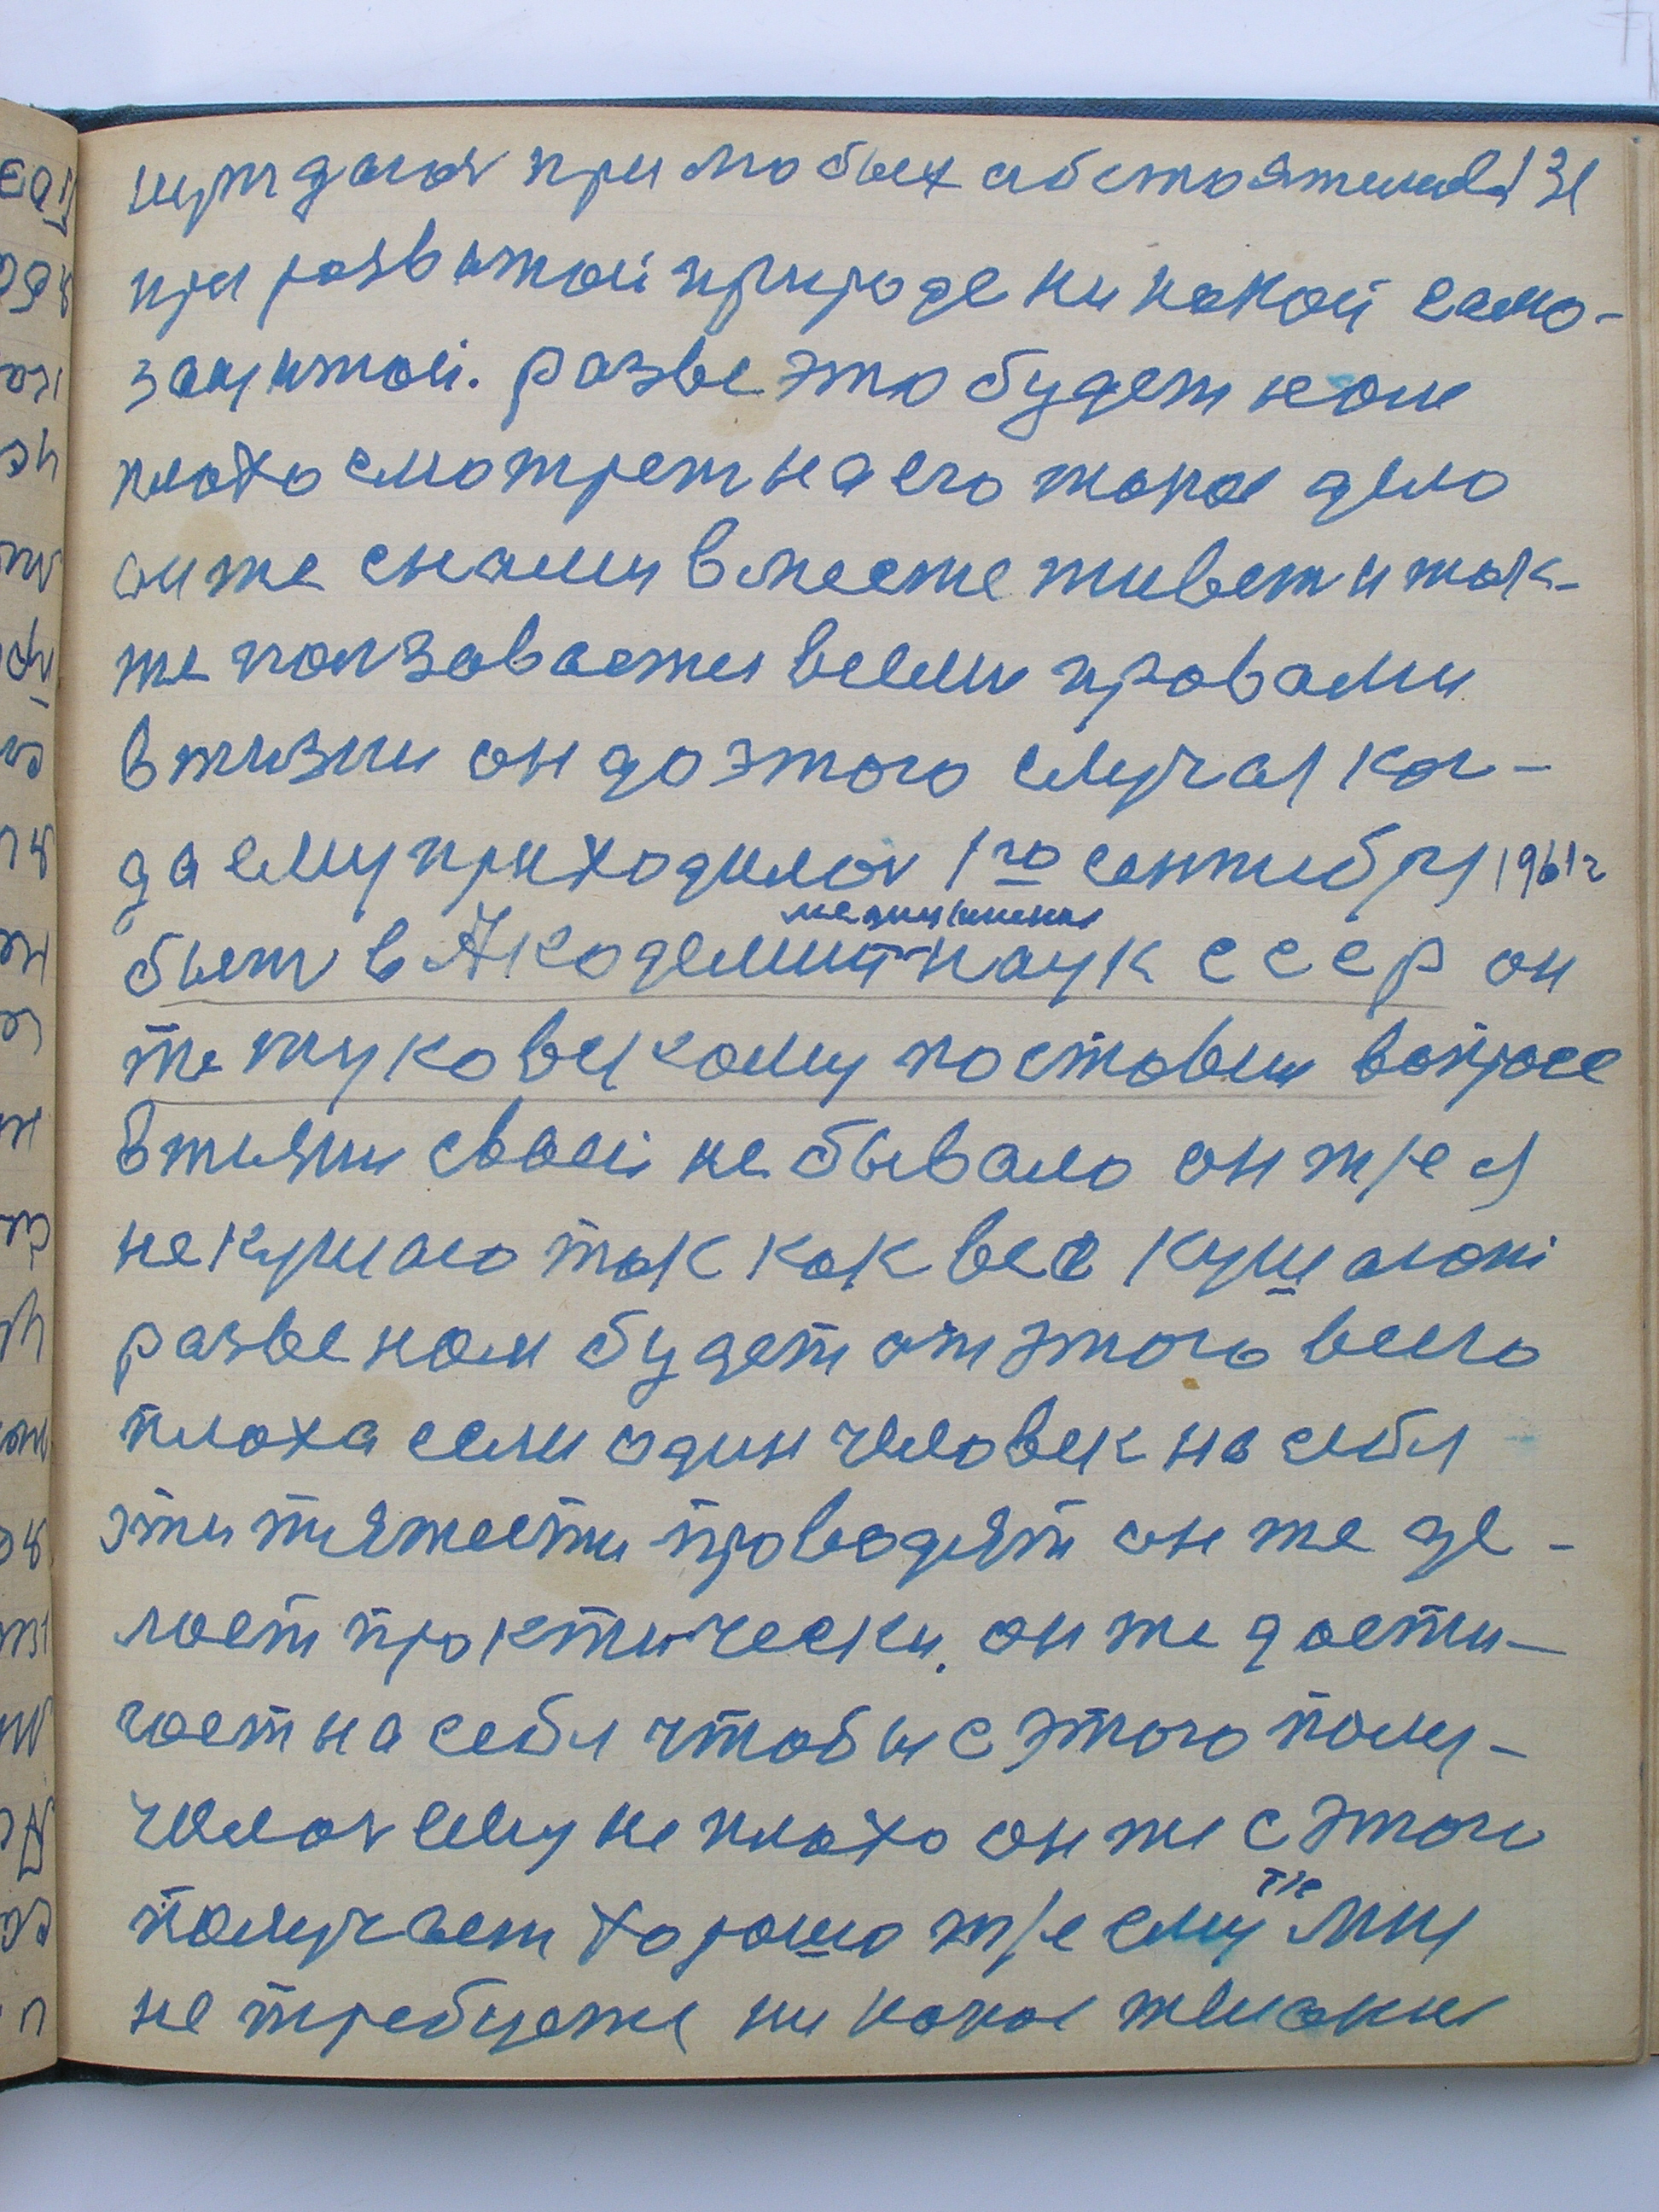 нуждался при любых обстоятельств
при развитой природе ни какой само-
защитой. разве это будет нам
плохо смотреть на его такое дело
он же снами вместе живет и так-
же ползовается всеми правами
в жизни он до этого случая ког-
да ему приходилос 1го сентября 1961г
медицинских
быть в Академии наук СССР он
же жуковскому поставил вопрос
в жизни своей не бывало он т/е я
не кушаю так как все кушают
разве нам будет от этого всего
плоха если один человек на себя
эти тяжести проводят он же де-
лает практически. он же дости-
гает на себя чтобы с этого полу-
чилось ему не плохо он же с этого
т/е
получает хорошо т/е ему мне
не требуется ни какое